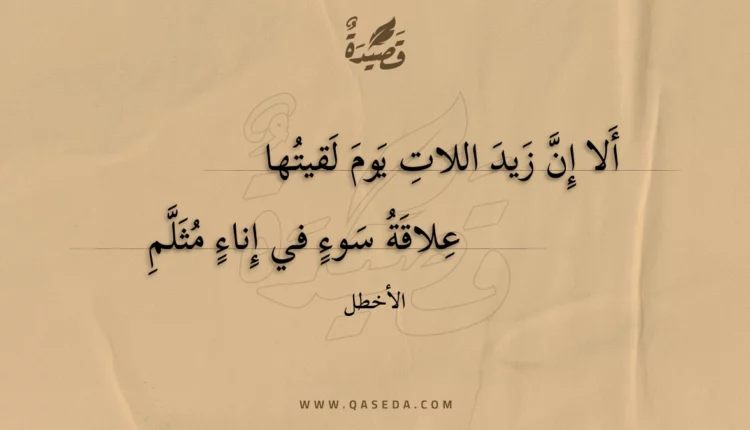 قَصِيْدَةٌ
أَلا إِنَّ زَيدَ اللاتِ يَومَ لَقيتُها
عِلاقَةُ سَوءٍ في إِناءٍ مُثَلَّمِ
الأخطل
WWW.QASEDA.COM